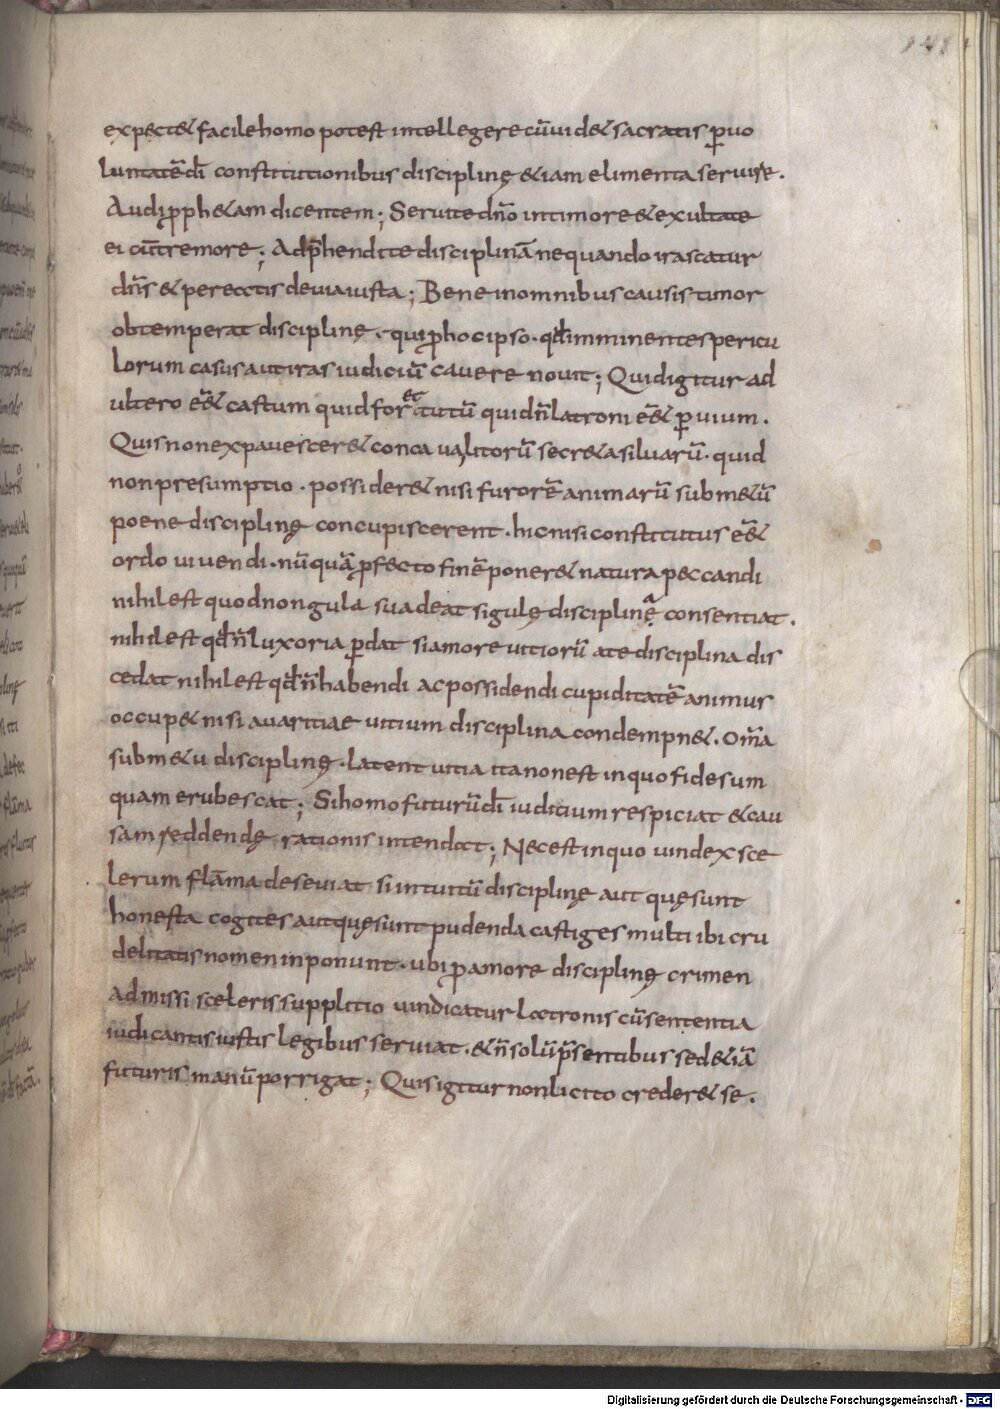 141
expect& facile homo potest intellegere cū uid& sacratis ꝑ uo
luntatē dī constitutionibus disciplinę &iam elimenta seruire.
Audi ꝓph&am dicentem; Seruite dño in timore & exultate
ei cū tremore; Adp̄hendite disciplinā nequando irascatur
dñs & pereatis de uia iusta; Bene in omnibus causis timor
obtemperat disciplinę. qui ꝓ hoc ipso. qđ imminentes pericu
lorum casus aut iras iudiciū cauere nouit; Quid igitur ad
ultero ēē& castum quid for& tutū quid ñ latroni ēē& ꝑuium.
Quis non expauescer& concaua litorū secr&a siluarū. quid
non presumptio. possider& nisi furorē animarū sub m&ū
poene disciplinę concupiscerent. hic nisi constitutus ēē&
ordo uiuendi. nūquā ꝓfecto finē poner& natura peccandi
nihil est quod non gula suadeat si gulę disciplinę a consentiat.
nihil est qđ ñ luxoria ꝑdat si amore uitiorū a te disciplina dis
cedat nihil est qđ ñ habendi ac possidendi cupiditatē animus
occup& nisi auaritiae uitium disciplina condempn&. Om̄a
sub m&u disciplinę. latent uitia ita non est in quo fidesum
quam erubescat; Si homo futurū dī iudicium respiciat & cau
sam reddendę rationis intendat; Nec est in quo uindex sce
lerum flāma deseuiat si intuitū disciplinę aut quę sunt
honesta cogites aut quę sunt pudenda castiges multi ibi cru
delitatis nomen inponunt. ubi ꝓ amore disciplinę crimen
admissi sceleris supplitio uindicatur latronis cū sententia
iudicantis iustis legibus seruiat. & ñ solū p̄sentibus sed &iā
futuris manū porrigat; Quis igitur non licito creder& se.
Digitalisierung gefördert durch die Deutsche Forschungsgemeinschaft - DFG